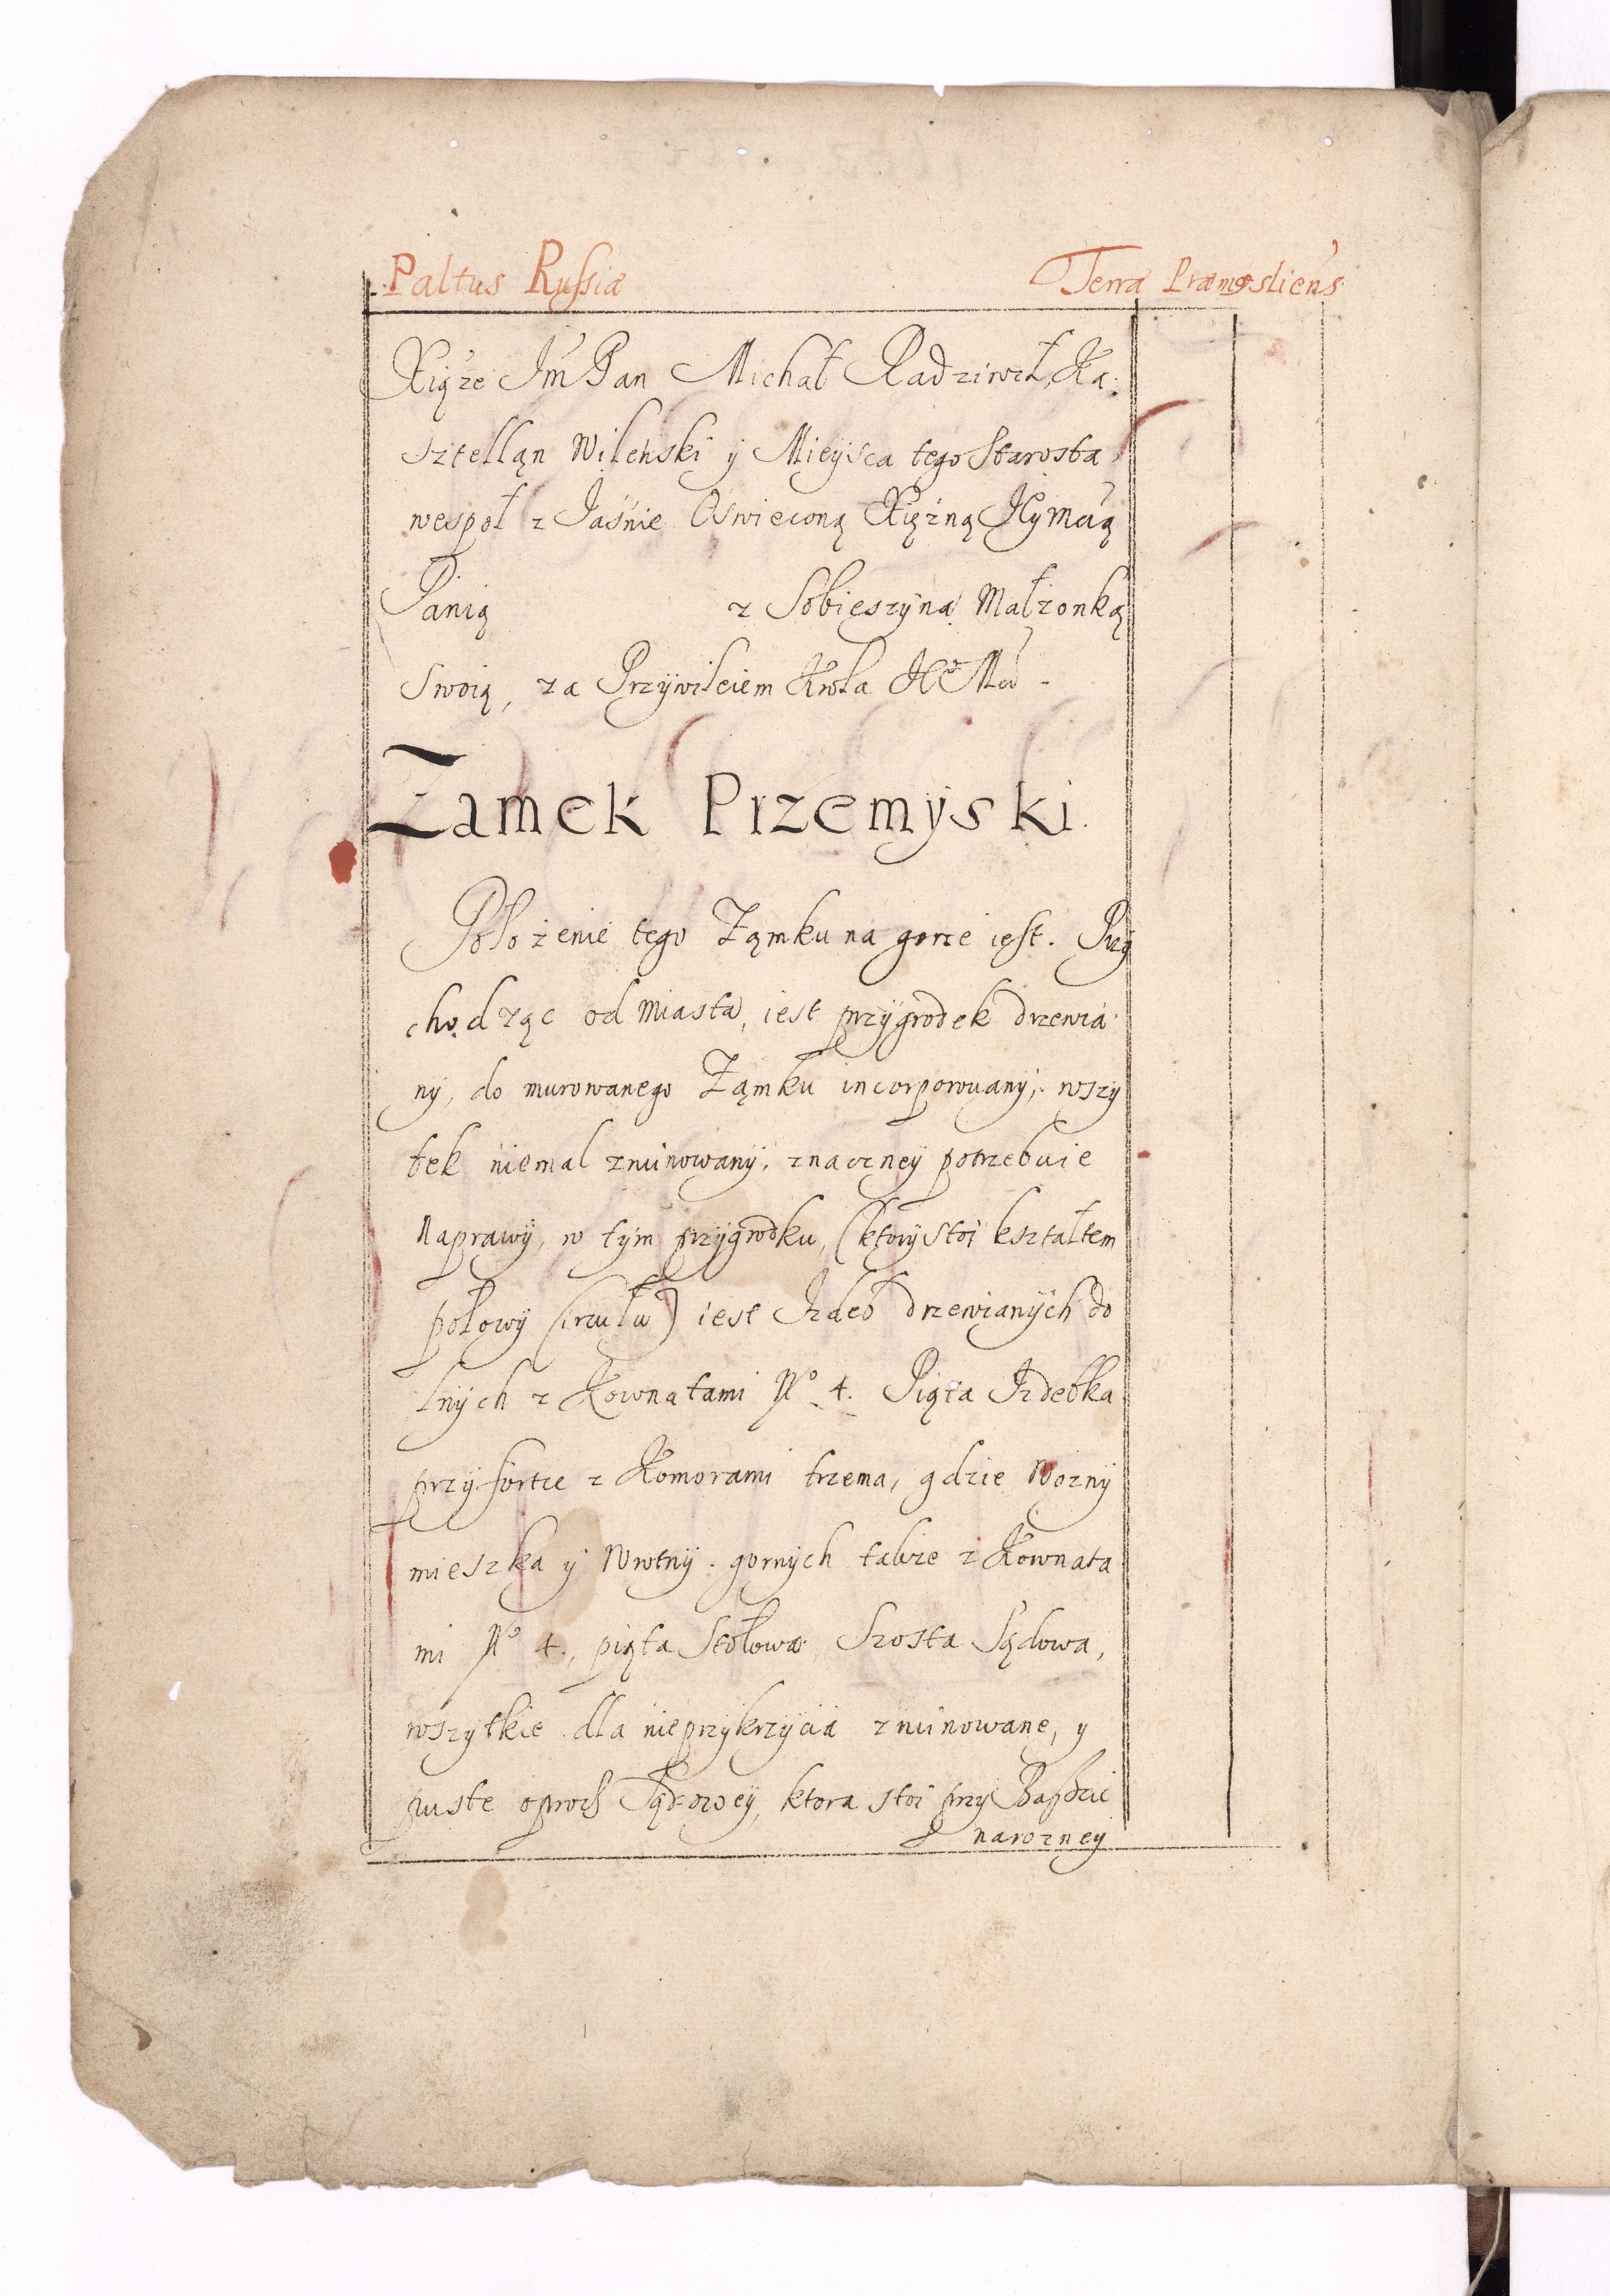 Paltus Russiæ
Terra Præmysliens
Xiąże Jm Pan Michał Radziwił, Ka:
sztelląn Wileński y Mieysca tego Starosta
wespoł z Jaśnie Oswieconą Xiężną Jeymcią
Panią z Sobieszyną Małzonką
Swoią, za Przywileiem Krola JKo Mci -
Zamek Przemyski.
Położenie tego Ząmku na gorze iest. Przy
chodząc od miasta, iest przygrodek drzewia
ny, do murowanego Ząmku incorporowany, wszy
tek niemal zruinowany, znaczney potrzebuie
Naprawy, w tym przygrodku, (ktory stoi kształtem
połowy Cirkułu) iest Izdeb drzewianych do
lnych z Kownatami No 4. Piąta Izdebka
przy fortce z Komorami trzema, gdzie Wozny
mieszka y Wrotny. gornych także z Kownata
mi No 4., piąta Stołowa, Szosta Sądowa,
wszytkie dla nieprzykrzycia zruinowane, y
puste oprocz Sądowey, ktora stoi przy Baszcie
narozney